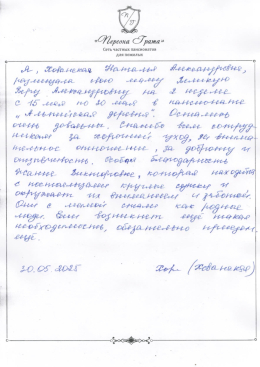 "Подосинки Грата"
Сеть частных пансионатов
для пожилых
Я, Хованская Наталья Александровна,
размещала свою маму
Веру Александровну на 2 недели
с 15 мая по 20 мая в пансионате
"Альпийская деревня". Остались
очень довольны. Спасибо всем сотруд-
никам за хороший уход, за внима-
тельное отношение, за доброту и
отзывчивость. Особая благодарность
Жанне Викторовне, которая находится
с постояльцами круглые сутки и
окружает их вниманием и заботой.
Они с мамой стали как родные
люди. Если возникнет ещё такая
необходимость, обязательно приедем
ещё.
20.05.2025 Хов. (Хованская)